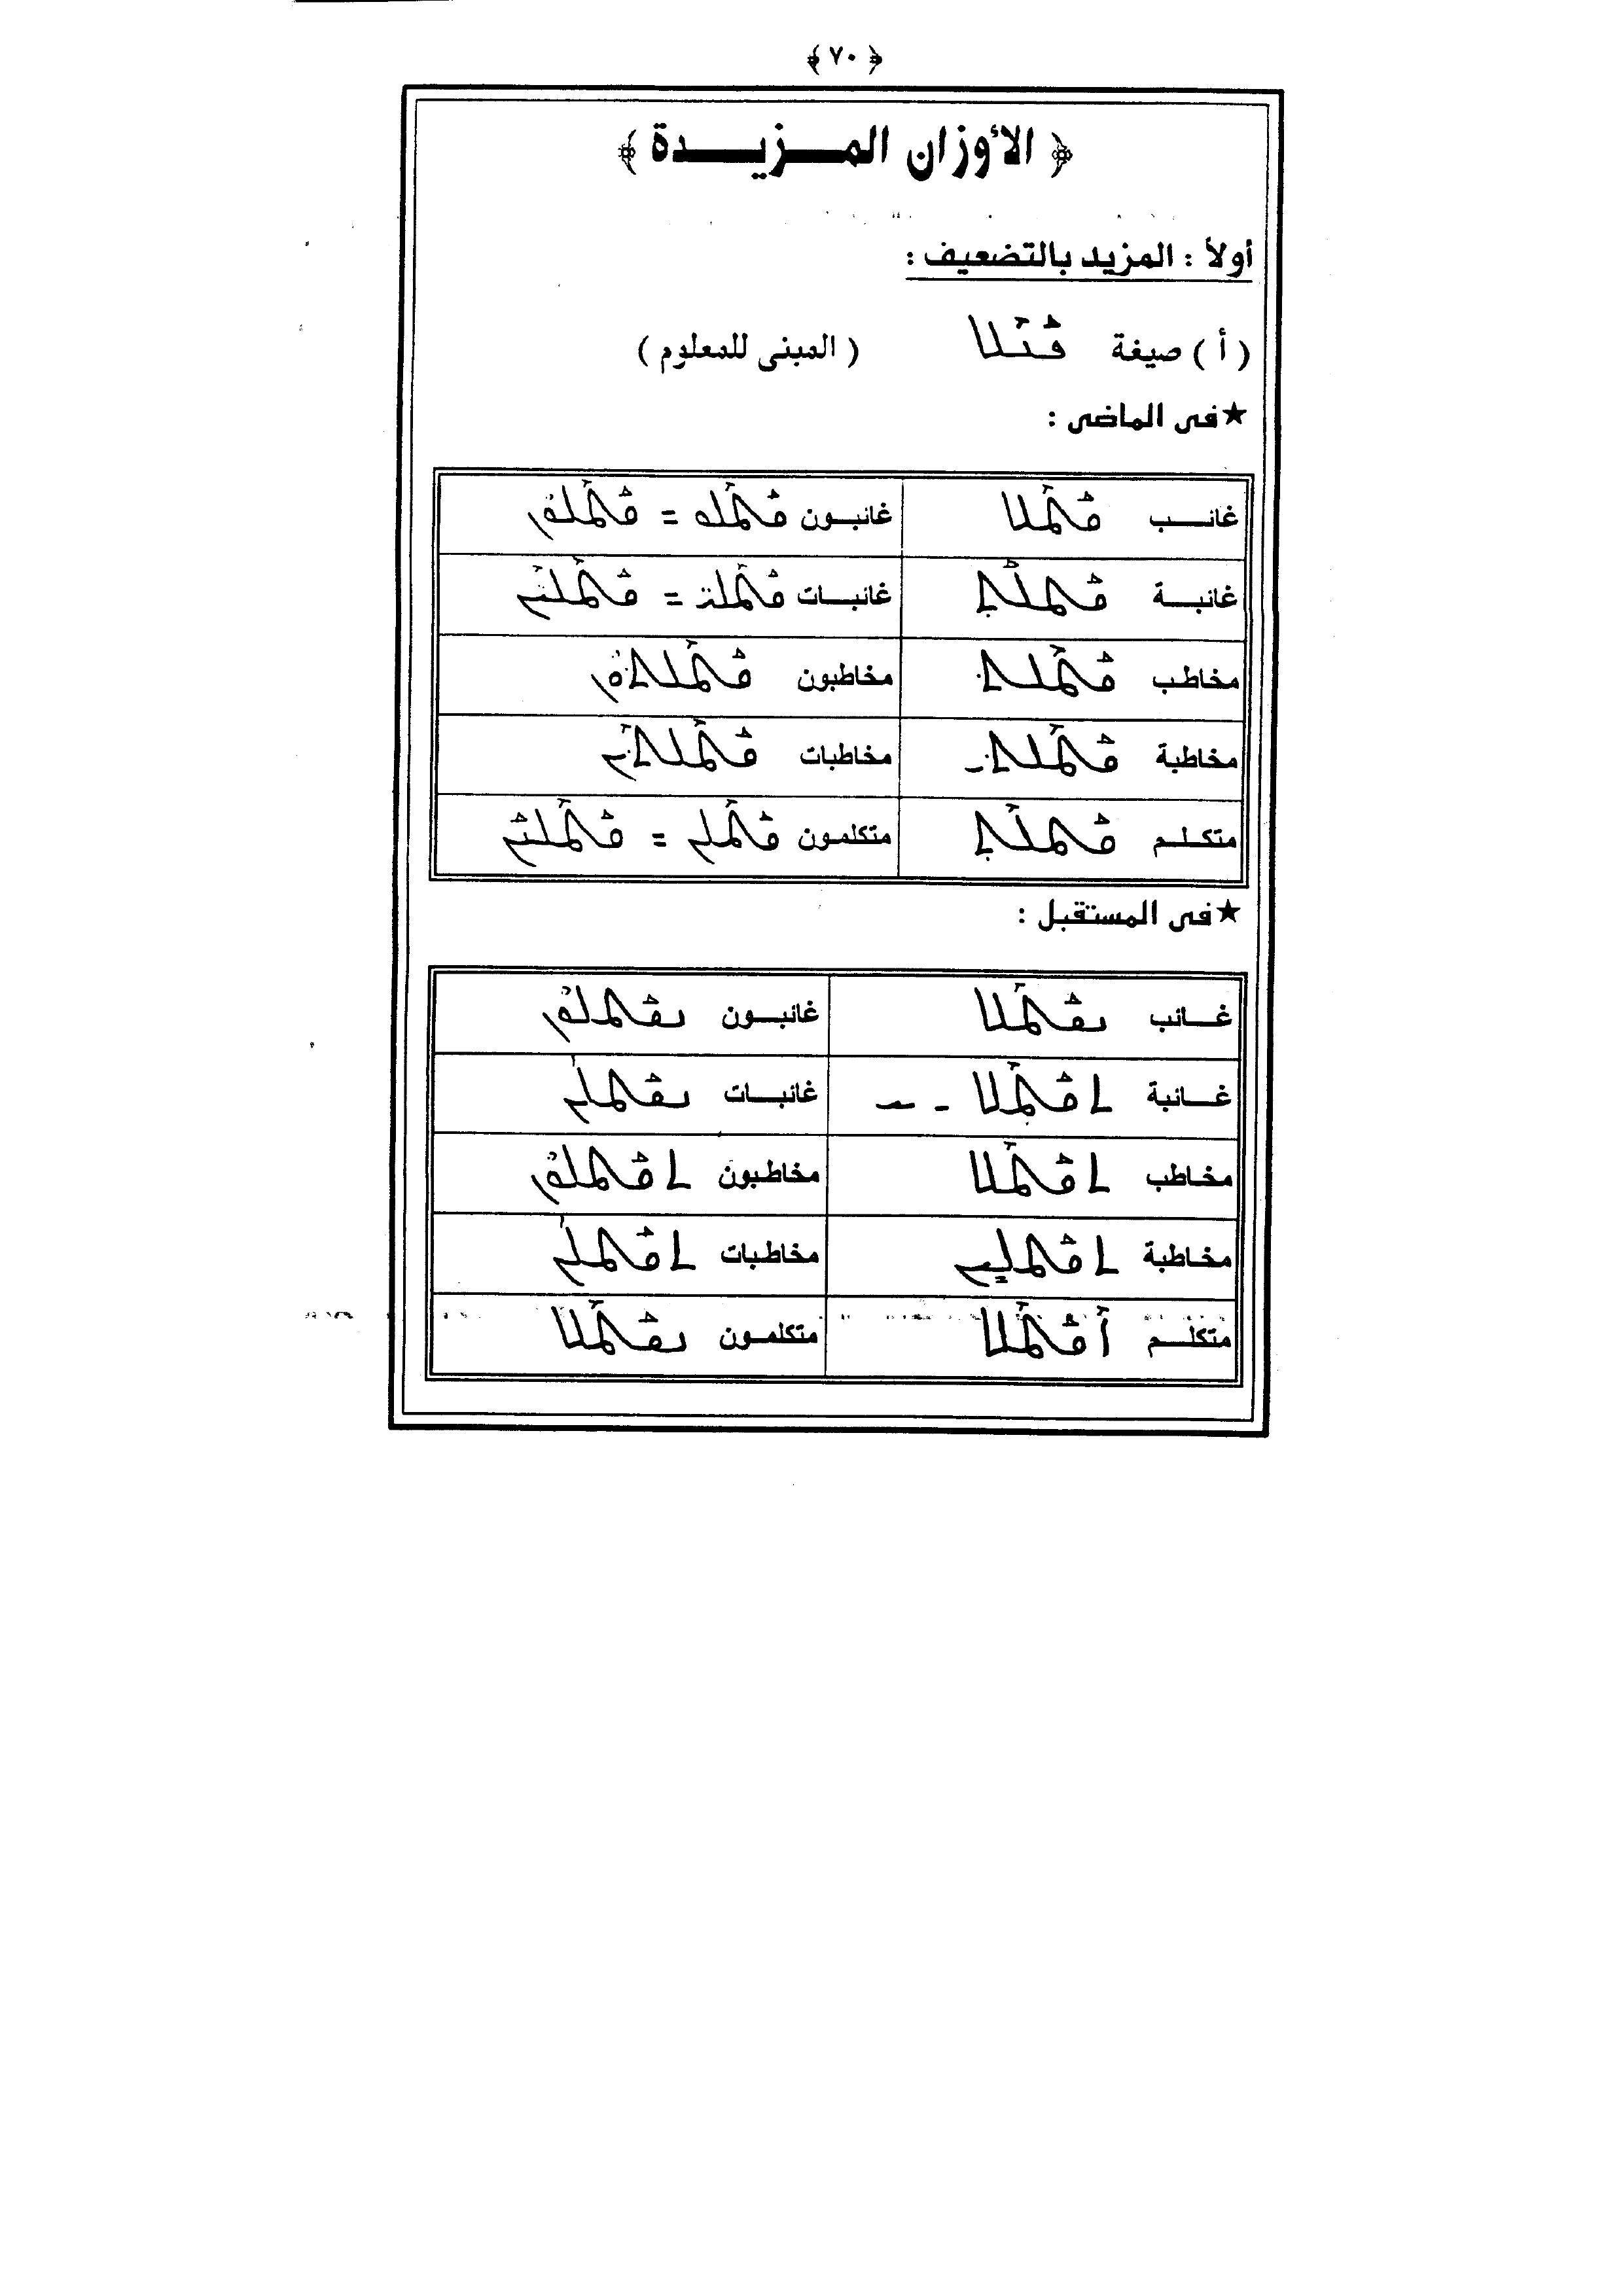 ﴿ ٧٠ ﴾
﴿ الأوزان المزيدة ﴾
أولاً : المزيد بالتضعيف :
( أ ) صيغة ( المبنى للمعلوم )
★ فى الماضى :
غائب ܩܛܠ غائبون ܩܛܠܘ = ܩܛܠܘܢ
غائبة ܩܛܠܬ غائبات ܩܛܠܝ = ܩܛܠܝܢ
مخاطب ܩܛܠܬ مخاطبون ܩܛܠܬܘܢ
مخاطبة ܩܛܠܬܝ مخاطبات ܩܛܠܬܝܢ
متكلم ܩܛܠܬ متكلمون ܩܛܠܢ = ܩܛܠܢܢ
★ فى المستقبل :
غائب ܢܩܛܠ غائبون ܢܩܛܠܘܢ
غائبة ܬܩܛܠ - ܝ غائبات ܢܩܛܠܢ
مخاطب ܬܩܛܠ مخاطبون ܬܩܛܠܘܢ
مخاطبة ܬܩܛܠܝܢ مخاطبات ܬܩܛܠܢ
متكلم ܐܩܛܠ متكلمون ܢܩܛܠ